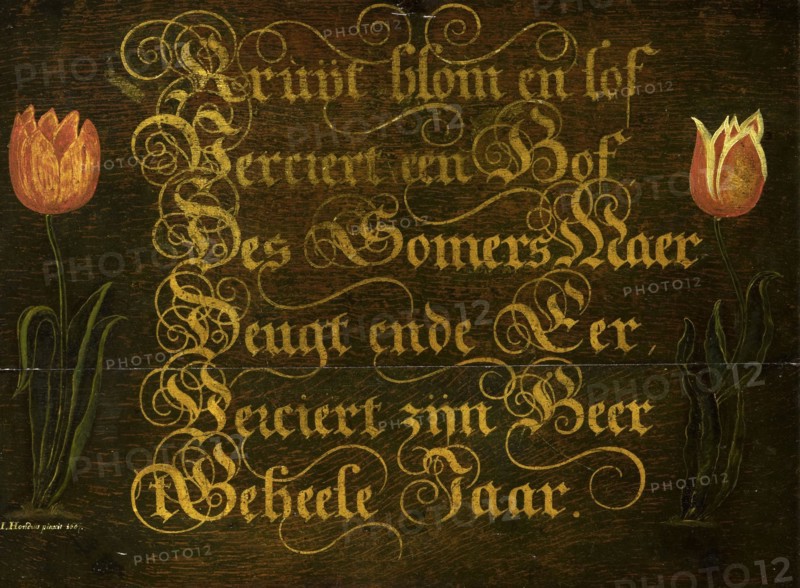 Krùÿt blom en lof
Verciert een Hof,
Des Somers Maer
Deugt ende Eer,
Verciert zijn Heer
't Geheele Jaar.
pinxit
PHOTO12